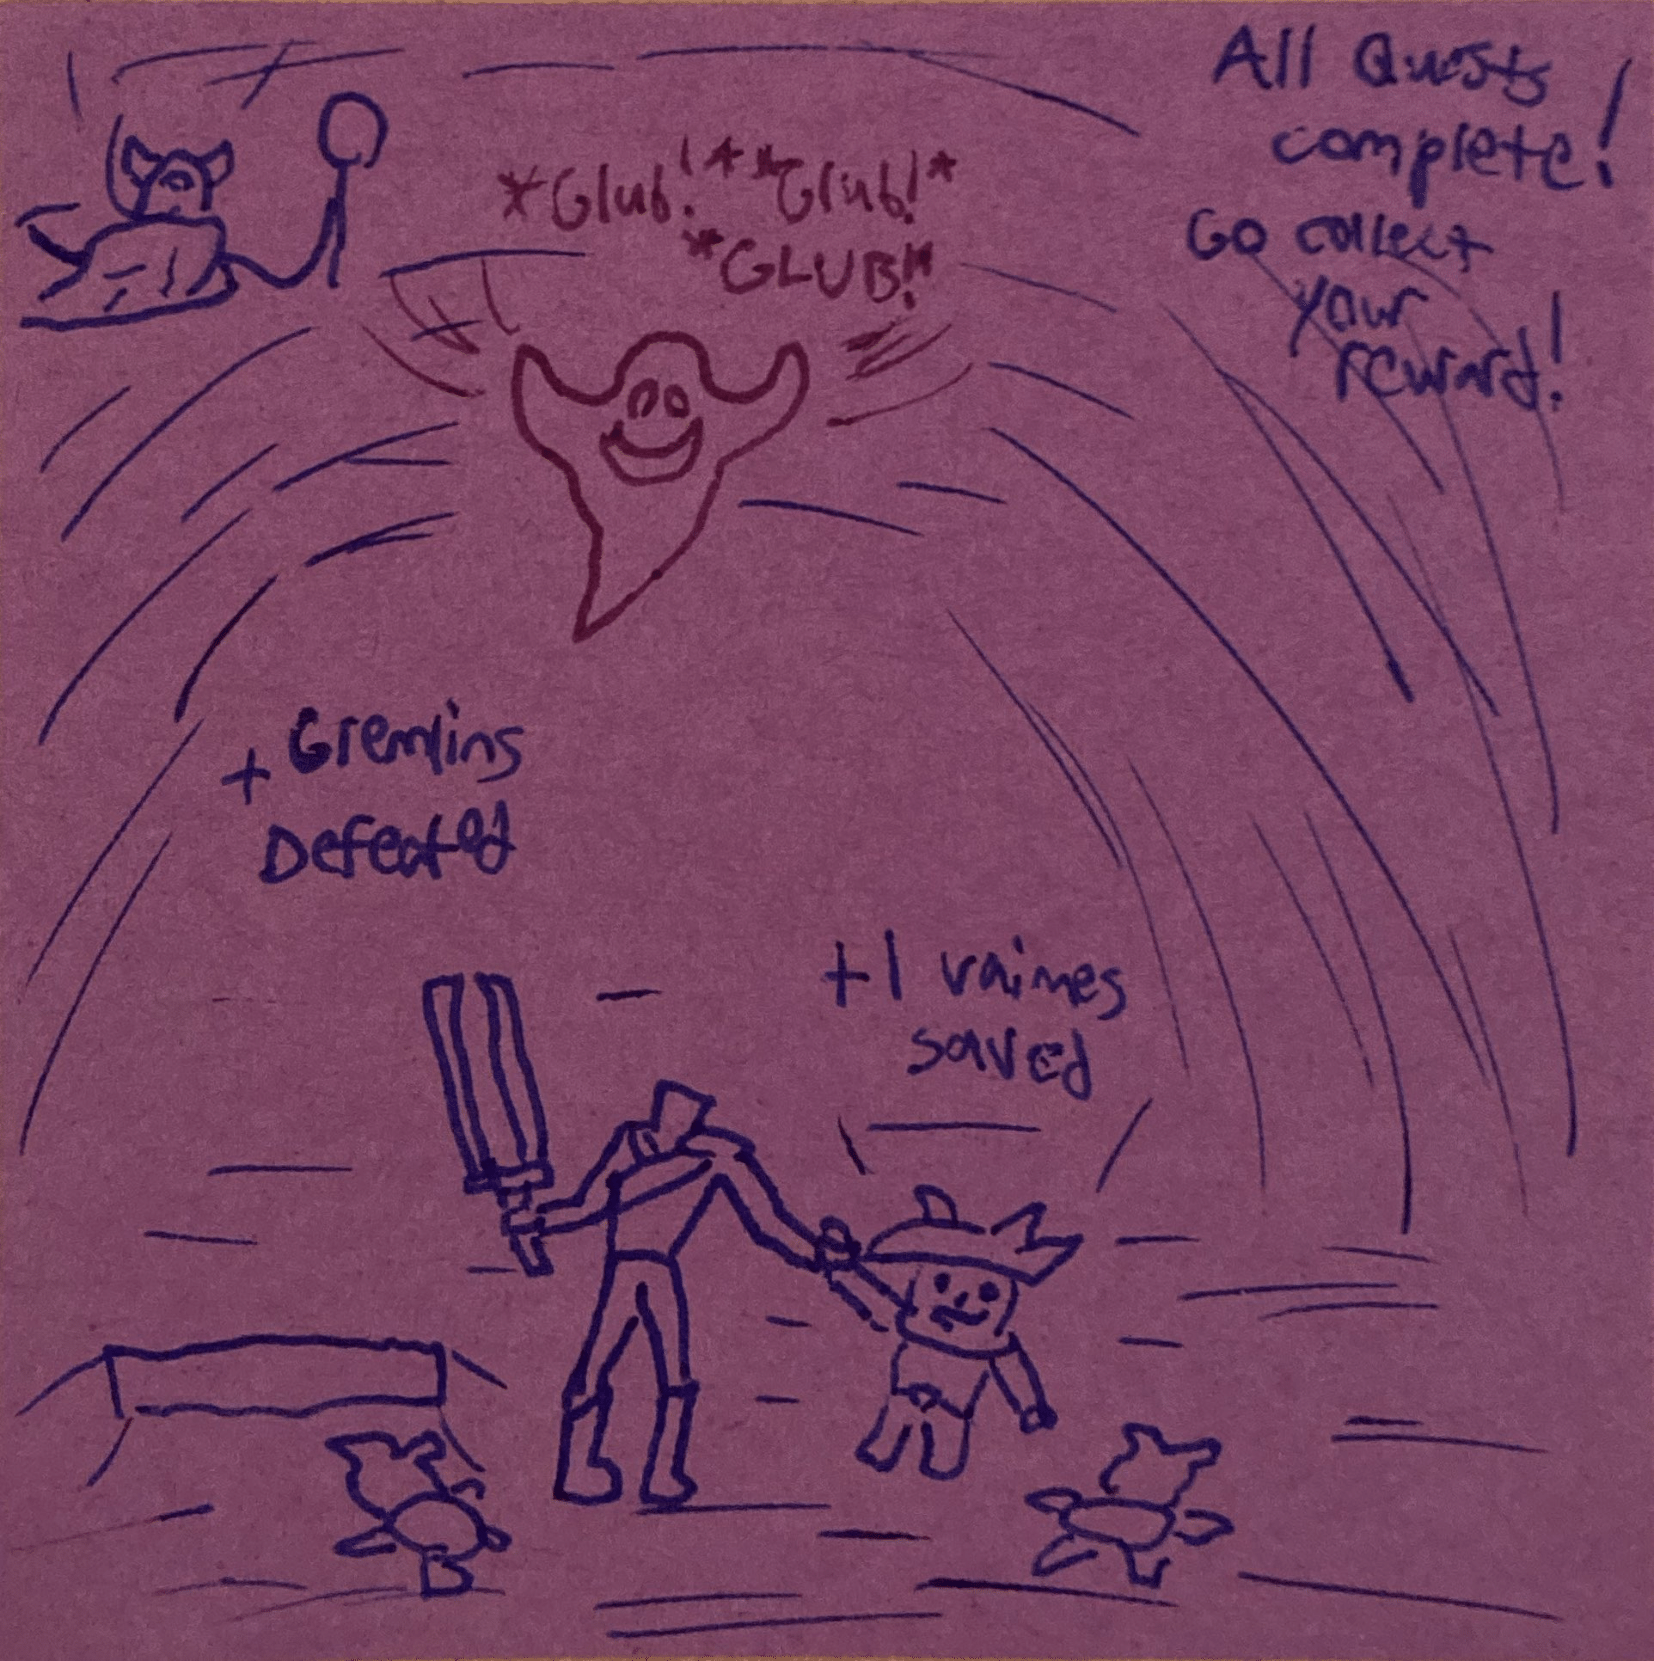 All Quests
complete!
Go collect
your
reward!
*Glub!* *Glub!*
*GLUB!*
+ Gremlins
Defeated
+1 vaimes
saved